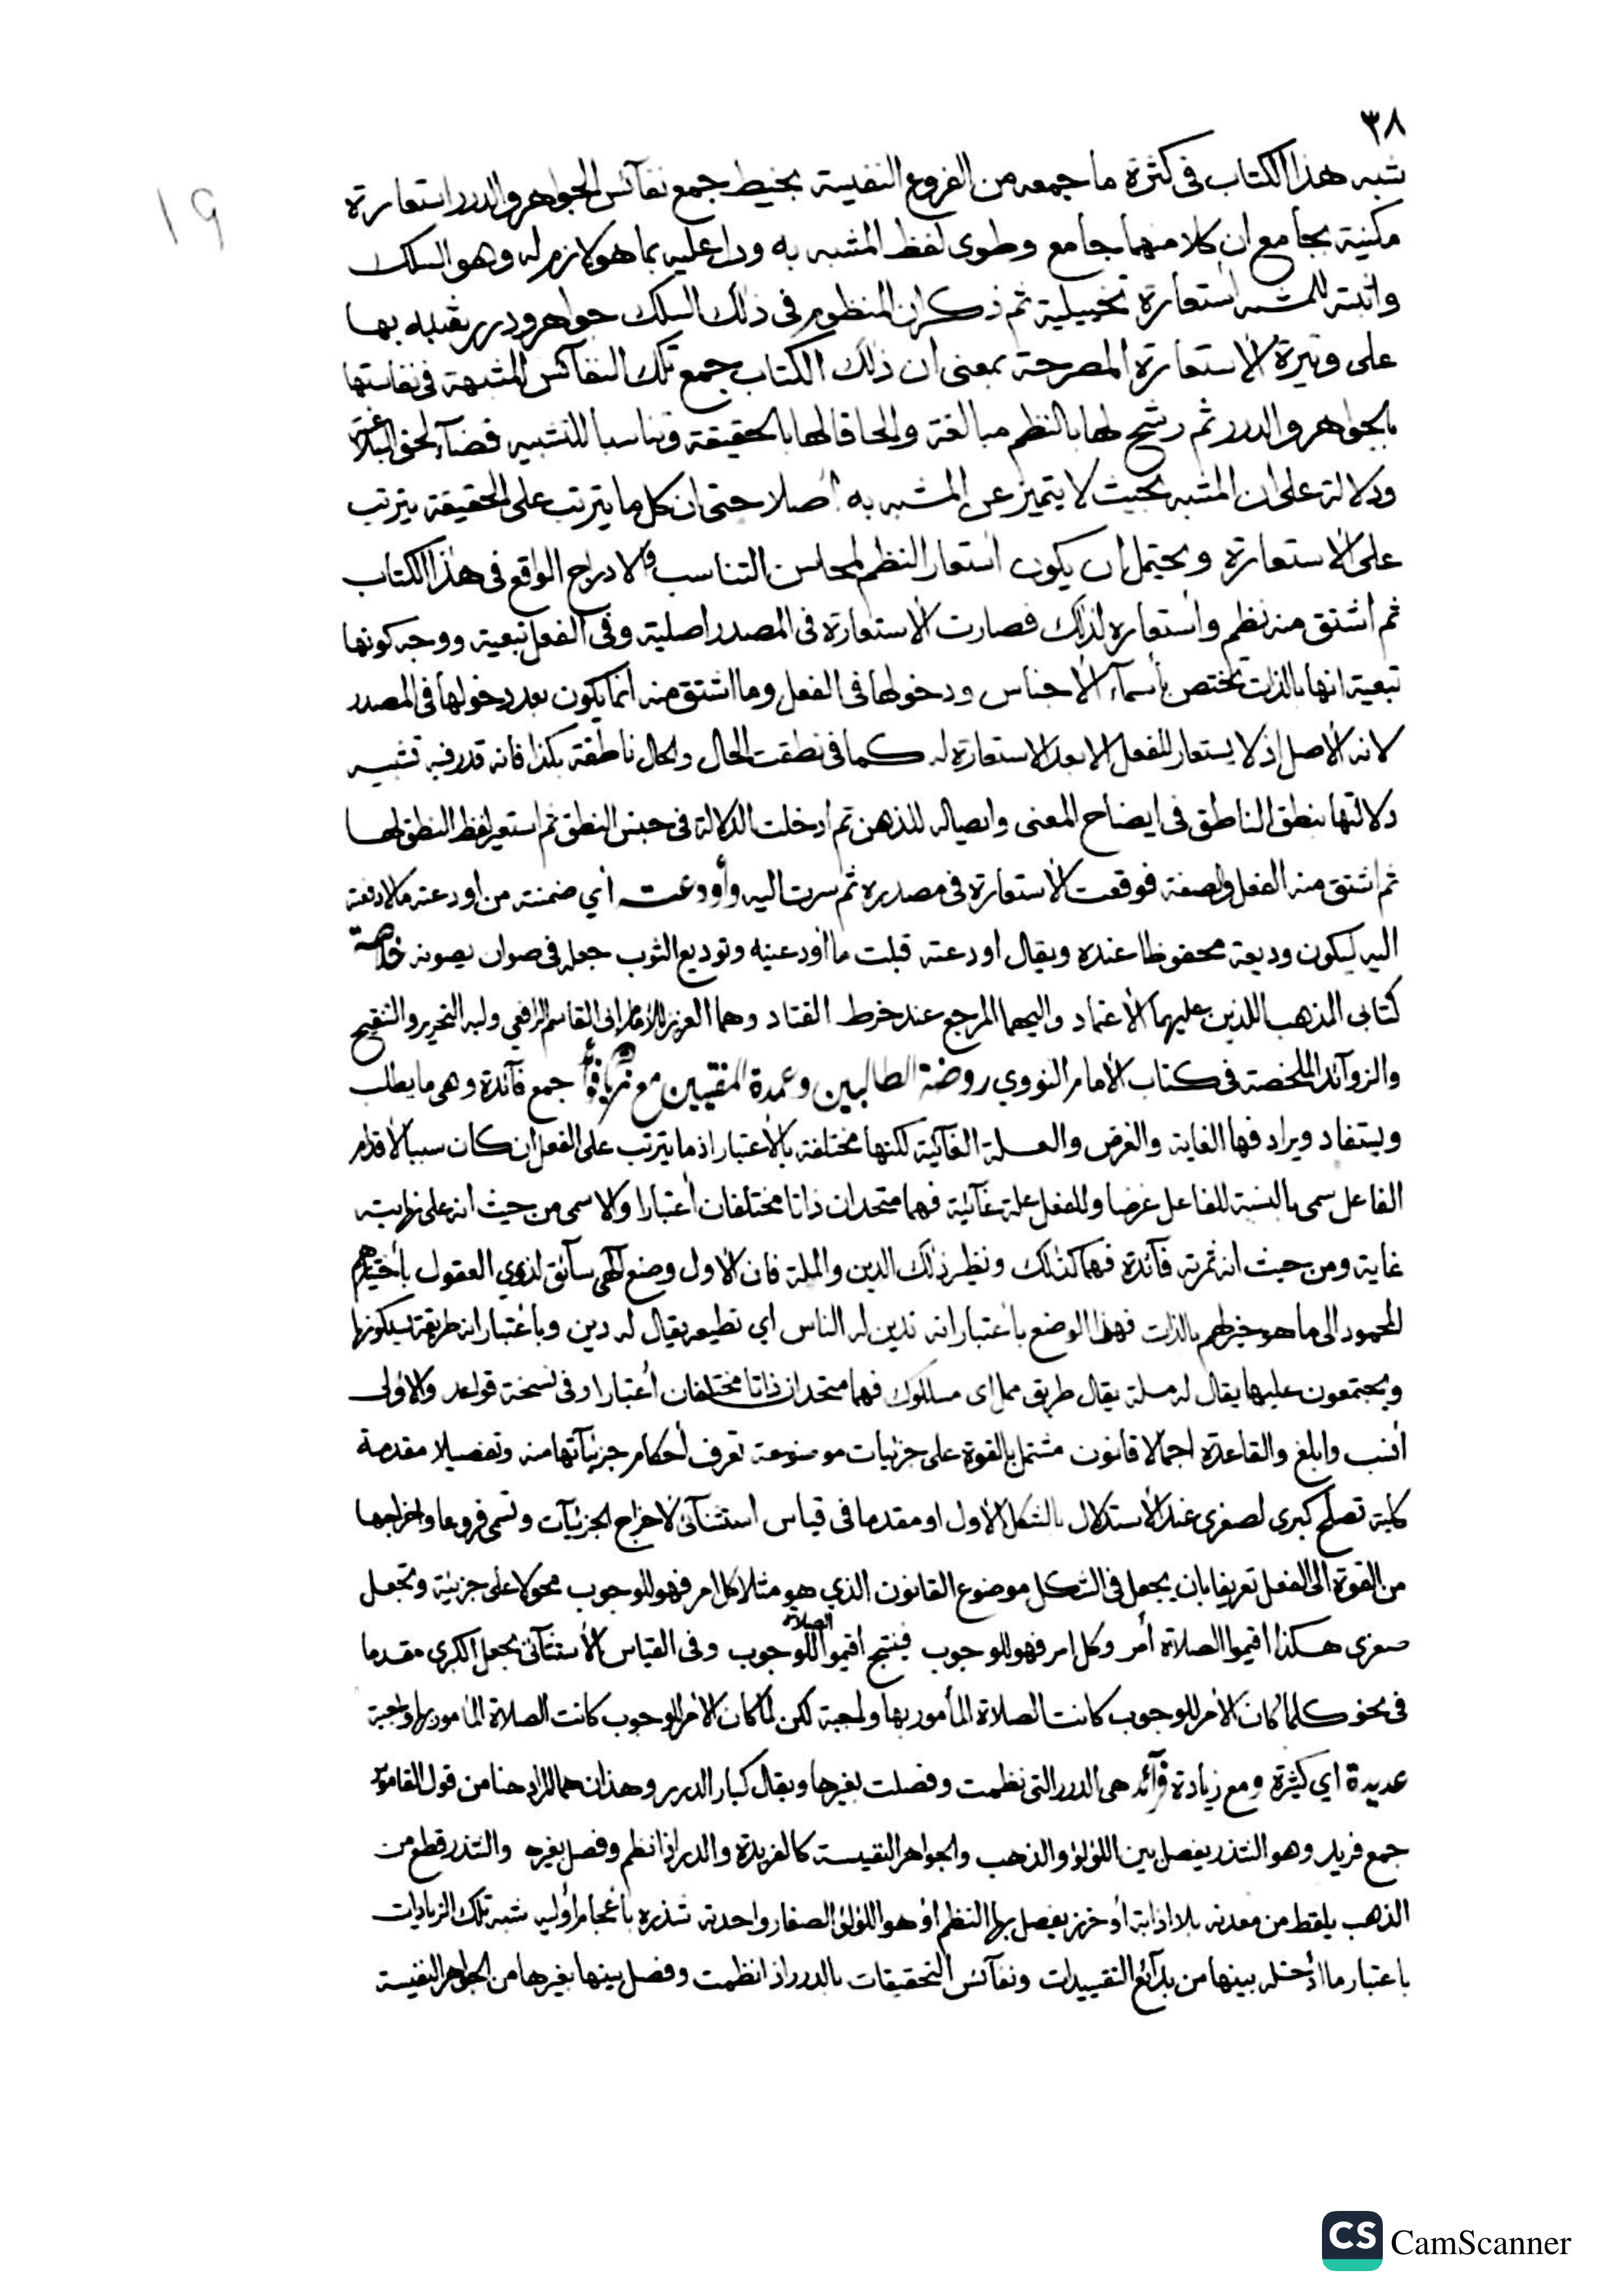 ٣٨
١٩
شبه هذا الكتاب فى كثرة ما جمعه من الفروع النفيسة بخيط جمع نفآئس الجواهر والدرر استعارة
مكنية بجامع ان كلا منهما جامع وطوى لفظ المشبه به ودل عليه بما هو لازم له وهو السلك
واثبته للمشبه استعارة تخييلية ثم ذكر ان المنظوم فى ذلك السلك جواهر ودرر بها
على وتيرة الاستعارة المصرحة بمعنى ان ذلك الكتاب جمع تلك النفآئس المشبهة فى نفاستها
بالجواهر والدرر ثم رشح لها بالنظم مبالغة والحاقا لها بالحقيقة وتناسبا للتشبيه قضآء لحق البلاغة
ودلالة على ان المشبه بحيث لا يتميز عن المشبه به اصلا حتى ان كل ما يترتب على الحقيقة يترتب
على الاستعارة ويحتمل ان يكون استعار النظم لمحاسن التناسب والادراج الواقع فى هذا الكتاب
ثم اشتق منه نظم واستعاره لذلك فصارت الاستعارة فى المصدر اصلية وفى الفعل تبعية ووجه كونها
تبعية انها بالذات تختص بأسمآء الأجناس ودخولها فى الفعل وما اشتق منه انما يكون بعد دخولها فى المصدر
لانه الاصل اذ لا يستعار الفعل الا بعد الاستعارة له كما فى نطقت الحال والحال ناطقة بكذا فانه قدر فيه تشبيه
دلالتها بنطق الناطق فى ايضاح المعنى وايصاله للذهن ثم ادخلت الدلالة فى جنس النطق ثم استعير لفظ النطق لها
ثم اشتق منه الفعل والصفة فوقعت الاستعارة فى مصدره ثم سرت اليه وأودعت أي ضمنته من اودعته مالا دفعته
اليه ليكون وديعة محفوظا عنده ويقال اودعته قبلت ما أودعنيه وتوديع الثوب جعله فى صوان يصونه خلاصة
كتابى المذهب اللذين عليهما الأعتماد واليهما المرجع عند خرط القتاد وهما العزيز للامام ابى القاسم الرافعي وليه التحرير والتنقيح
والزوآئد الملخصة فى كتاب الأمام النووي روضة الطالبين وعمدة المفتيين مع جمع فآئدة وهى ما يطلب
ويستفاد ويراد فها الغاية والغرض والعلة الغآئية لكنها مختلفة بالأعتبار اذ ما يترتب على الفعل ان كان سببا لأقدام
الفاعل سمى بالنسبة للفاعل غرضا وللفعل علة غآئية فهما متحدان ذاتا مختلفان أعتبارا والا سمى من حيث انه على نهايته
غاية ومن حيث انه ثمرته فآئدة فهما كذلك ونظير ذلك الدين والملة فان الاول وضع الهى سآئق لذوي العقول بأختيارهم
المحمود الى ما هو خير لهم بالذات فهذا الوضع باعتبار انه تدين له الناس اي تطيعه يقال له دين وبأعتبار انه طريقة يسلكونها
ويجتمعون عليها يقال له ملة يقال طريق ممل اى مسلوك فهما متحدان ذاتا مختلفان أعتبارا وفى نسخة قواعد والاولى
أنسب وابلغ والقاعدة اجمالا قانون مشتمل بالقوة على جزئيات موضوعة تعرف أحكام جزئيآتها منه وتفصيلا مقدمة
كلية تصلح كبرى لصغرى عند الأستدلال بالشكل الأول او مقدما فى قياس استثنآئى لأخراج الجزئيآت وتسمى فروعا واخراجها
من القوة الى الفعل تعريفا بان يجعل فى الشكل موضوع القانون الذي هو مثلا كل امر فهو للوجوب محمولا على جزئية وتجعل
صغرى هكذا اقيموا الصلاة أمر وكل امر فهو للوجوب فينتج اقيموا الصلاة للوجوب وفى القياس الأستثنآئى يجعل الكبرى مقدما
فى نحو كلما كان الأمر للوجوب كانت الصلاة المأمور بها واجبة لكن لما كان الأمر للوجوب كانت الصلاة المأمور بها واجبة
عديدة اي كثيرة ومع زيادة فرآئد هى الدرر التى نظمت وفصلت بغيرها ويقال كبار الدرر وهذان هما المراد هنا من قول القاموس
جمع فريد وهو الشذر يفصل بين اللؤلؤ والذهب والجواهر النفيسة كالفريدة والدر اذا نظم وفصل بغيره والشذر قطع من
الذهب يلقط من معدنه بلا اذابة أو خرز يفصل بها النظم او هو اللؤلؤ الصغار واحدته شذره بأعجام أوليه شبه تلك الزيادات
باعتبار ما ادخله بينها من بدآئع التقييدات ونفآئس التحقيقات بالدرر اذا نظمت وفصل بينها بغيرها من الجواهر النفيسة
CS CamScanner